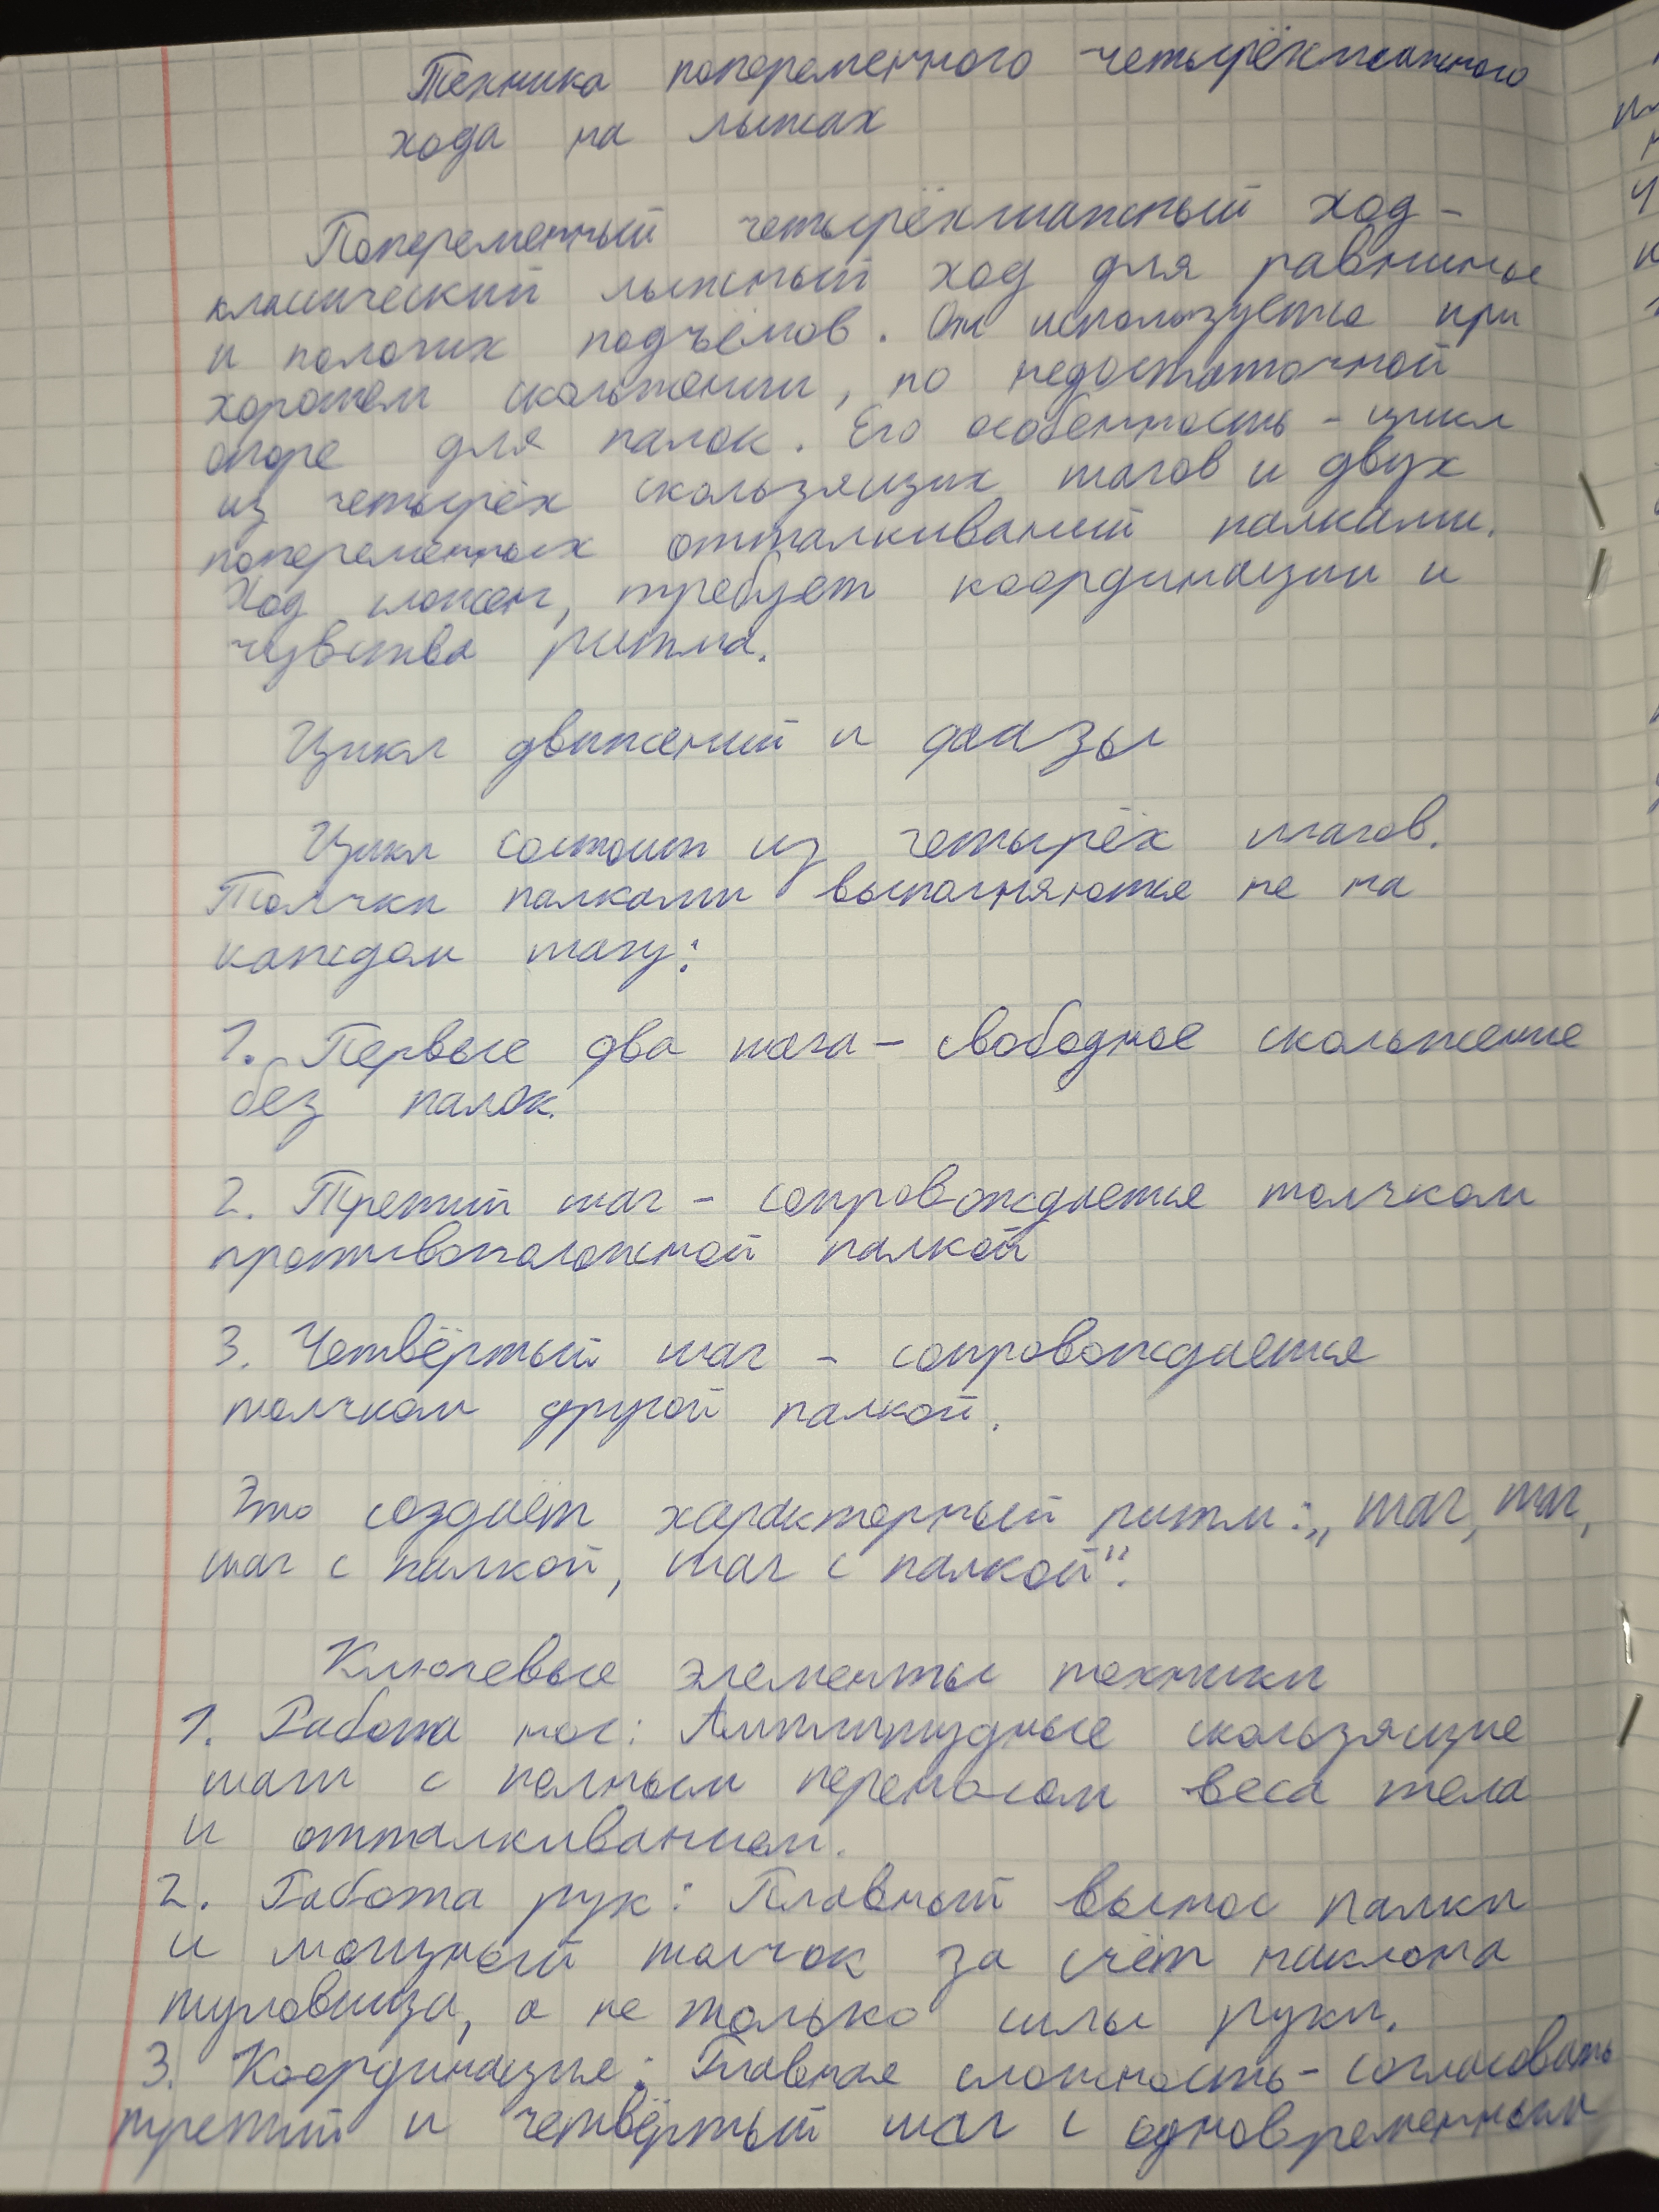 Техника попеременного четырёхшажного
хода на лыжах
Попеременный четырёхшажный ход –
классический лыжный ход для равнины
и пологих подъёмов. Он используется при
хорошем скольжении, но недостаточной
опоре для палок. Его особенность – цикл
из четырёх скользящих шагов и двух
попеременных отталкиваний палками.
Ход сложен, требует координации и
чувства ритма.
Цикл движений и фазы
Цикл состоит из четырёх шагов.
Толчки палками выполняются не на
каждом шагу:
1. Первые два шага – свободное скольжение
без палок.
2. Третий шаг – сопровождается толчком
противоположной палкой
3. Четвёртый шаг – сопровождается
толчком другой палкой.
Это создаёт характерный ритм: „шаг, шаг,
шаг с палкой, шаг с палкой".
Ключевые элементы техники
1. Работа ног: Амплитудные скользящие
шаги с полным переносом веса тела
и отталкиванием.
2. Работа рук: Плавный вынос палки
и мощный толчок за счёт наклона
туловища, а не только силы руки.
3. Координация: Главная сложность – согласовать
третий и четвёртый шаг с одновременным